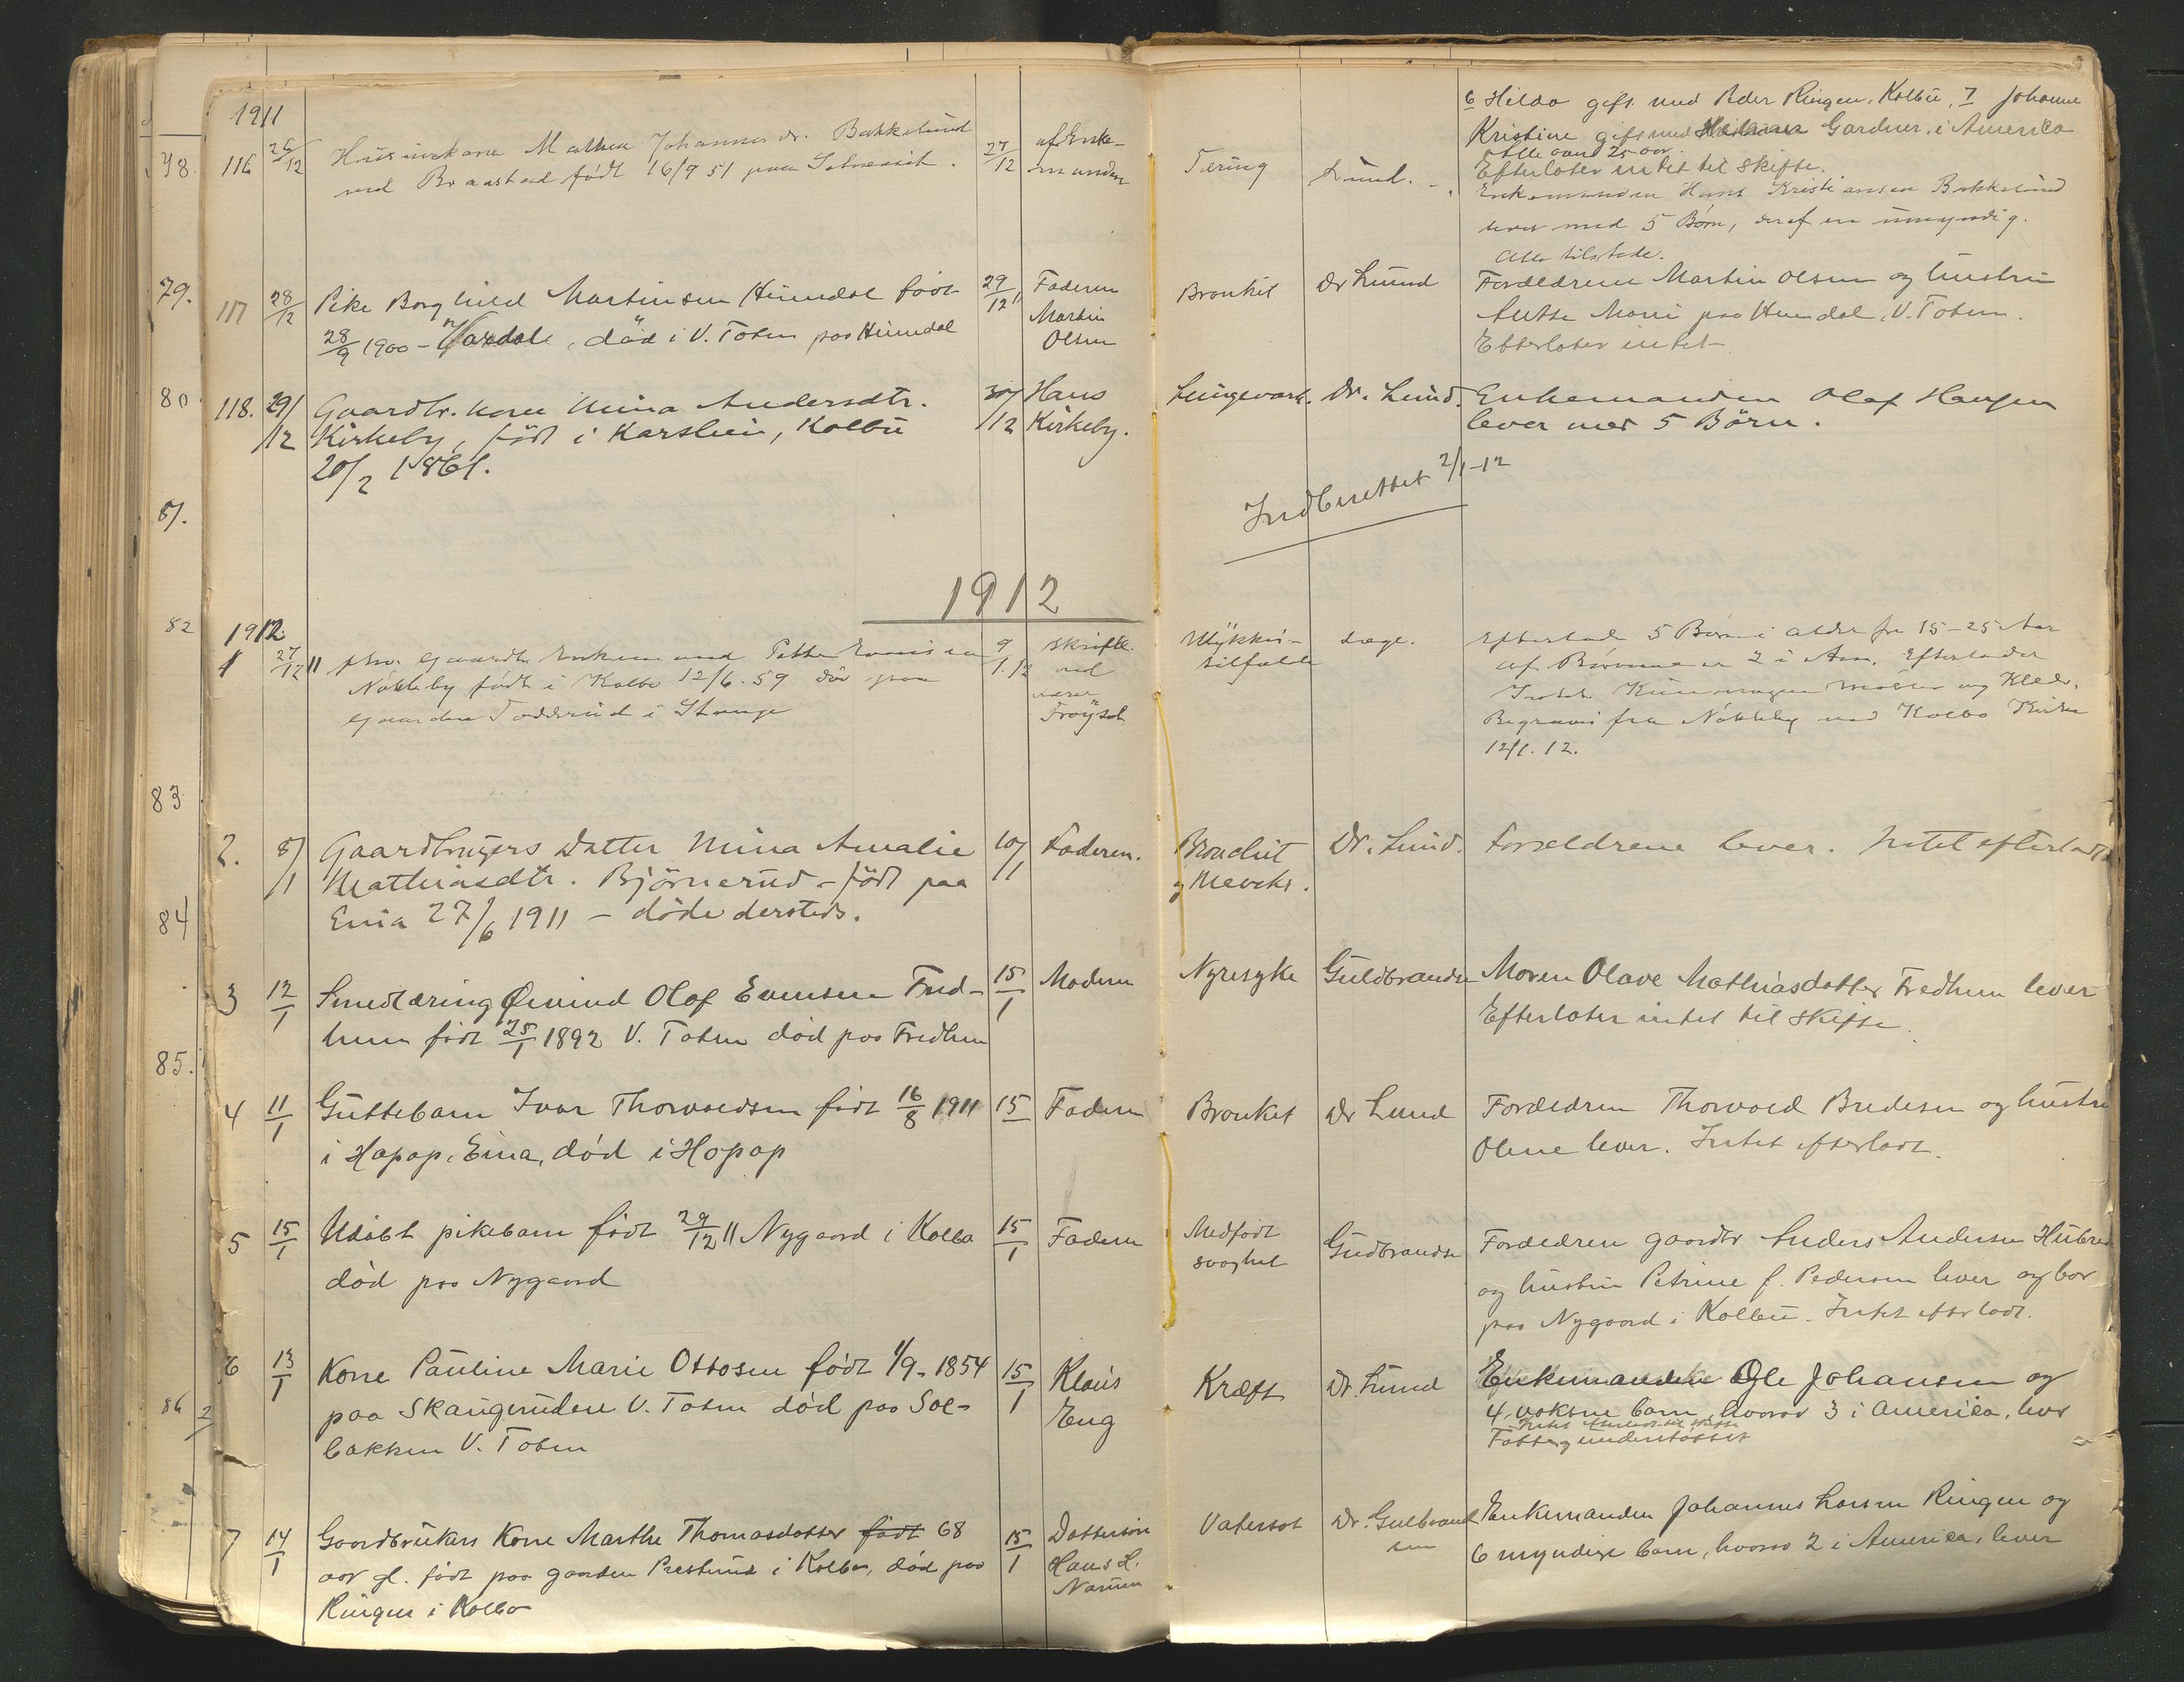 1911
6 Hilda gift med Peder Ringen, Kolbu, 7 Johanne
Kristine gift med Gardner i America
Alle over 25 aar.
Efterlater intet til skifte.
78. 116 26/12 Husmdskone Mathea Johannesdr. Bakkelund 27/12 af Enke- Tæring Lund. Enkemanden Hans Kristiansen Bakkelund
ved Braastad født 16/9 51 paa manden lever med 5 Børn, deraf en umyndig.
Alle tilstede.
79. 117 28/12 Pike Borghild Martinsen Hundal født 29/12 11 Faderen Bronkit Dr Lund Forældrene Martin Olsen og hustru
28/9 1900 - Vardal, død i V. Toten paa Hundal Martin Marie paa Hundal, V. Toten.
Olsen Efterlater intet
80 118. 29/12 Gaardbr. kone Mina Andersdtr. 30/12 Hans Lungevark. Dr. Lund. Enkemanden Olaf Hansen
Kirkeby, født i Karslien, Kolbu Kirkeby. lever med 5 Børn.
20/2 1861.
81. Indberettet 2/1-12
1912
82 1912.
1 27/12 11 fhv. Gaardbr. Enkemand Petter Evensen 9/1.12 skriftl. Ulykkes- Læge. Efterlod 5 Børn i alder fra 15-25 Aar
Nøkleby født i Kolbo 12/6.59 død paa ved tilfælde af Børnene er 2 i Am. Efterlader
Gaarden i Stange Intet. Kun nogen Møbler og Klæder.
Begraves fra Nøkleby ved Kolbo Kirke
12/1.12.
83
2. 8/1 Gaardbrugers Datter Mina Amalie 10/1 Faderen. Bronchit Dr. Lund. Forældrene lever. Intet efterladt
Mathiasdtr. Bjørnerud - født paa og
84 Eina 27/6 1911 - døde dersteds.
3 12/1 Smedlæring Øivind Olaf Evensen Fred- 15/1 Moderen Nyresyke Guldbrandsen Moren Olave Mathiasdatter Fredheim lever
heim født 25/1 1892 V. Toten død paa Fredheim Efterlater intet til skifte.
85.
4 11/1 Guttebarn Ivar Thorvaldsen født 16/8 1911 15 Faderen Bronkit Dr Lund Forældrene Thorvald Bredesen og hustru
i Hagap, Eina, død i Hagap Oline lever. Intet efterladt.
5 15/1 Udøbt pikebarn født 29/12 11 Nygaard i Kolbo 15/1 Faderen Medfødt Gudbrandsen Forældrene gaardbr Anders Andersen
død paa Nygaard svaghet og hustru Petrine f. Pedersen lever og bor
paa Nygaard i Kolbu. Intet efterladt.
6 13/1 Kone Pauline Marie Ottosen født 1/9-1854 15/1 Klaus Kræft Dr. Lund Enkemanden Ole Johansen og
86 2 paa Skaugeruden V. Toten død paa Sol- Eng 4 voksne barn, hvorav 3 i America, lever
bakken V. Toten Intet efterladt til skifte
Fattigunderstøttet
7 14/1 Gaardbrukers Kone Marthe Thomasdatter født 68 15/1 Dattersøn Vatersot Dr. Gulbrand Enkemanden Johannes Larsen Ringen og
aar gl. født paa gaarden Prestrud i Kolbu, død paa Hans H. sen 6 myndige barn, hvorav 2 i America, lever
Ringen i Kolbo